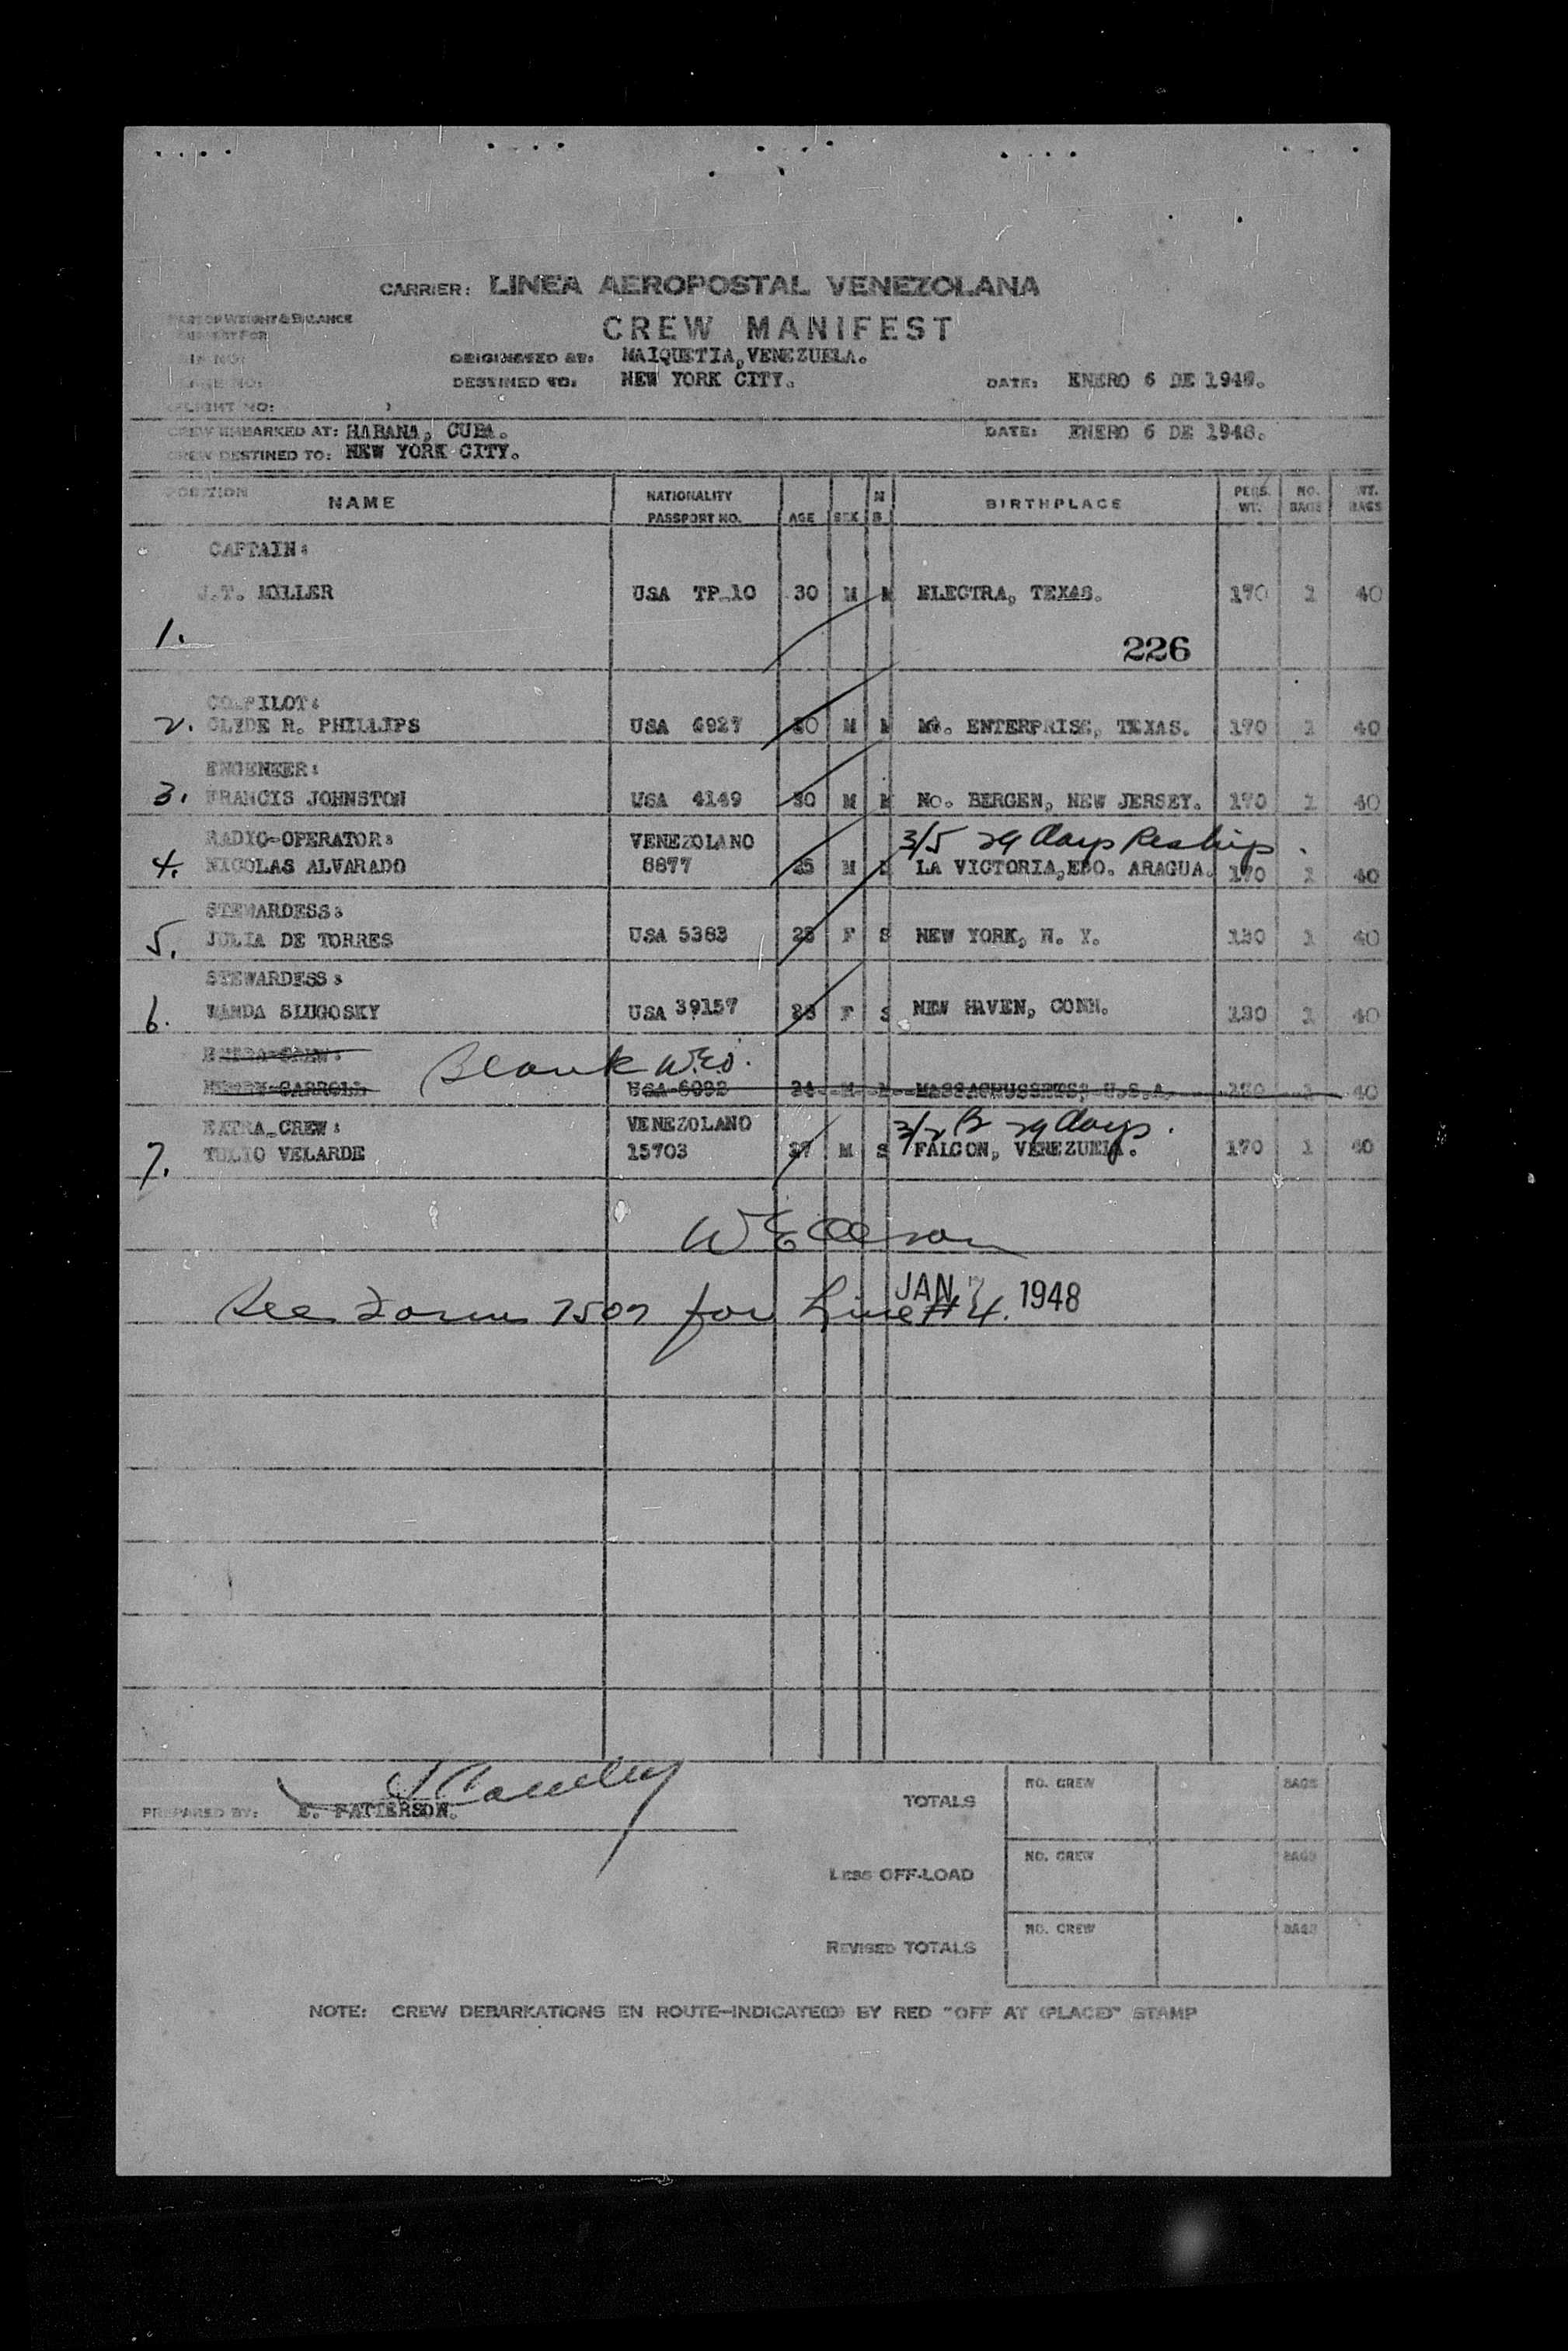 CARRIER: LINEA AEROPOSTAL VENEZOLANA
WEIGHT & BALANCE
CREW MANIFEST
ORIGINATED AT: MAIQUETIA, VENEZUELA.
DESTINED TO: NEW YORK CITY. DATE: ENERO 6 DE 1948.
FLIGHT NO:
CREW EMBARKED AT: HABANA, CUBA. DATE: ENERO 6 DE 1948.
CREW DESTINED TO: NEW YORK CITY.
POSITION NAME NATIONALITY PASSPORT NO. AGE SEX BIRTHPLACE PERS. WT. NO. BAGS WT. BAGS
CAPTAIN:
J.T. MILLER USA TP-10 30 M M ELECTRA, TEXAS. 170 1 40
1.
226
CO-PILOT:
2. CLYDE R. PHILLIPS USA 6927 30 M M Mt. ENTERPRISE, TEXAS. 170 1 40
ENGENEER:
3. FRANCIS JOHNSTON USA 4149 30 M M NO. BERGEN, NEW JERSEY. 170 1 40
RADIO-OPERATOR: VENEZOLANO 3/5 29 days Reship.
4. NICOLAS ALVARADO 6877 25 M LA VICTORIA, EDO. ARAGUA. 170 1 40
STEWARDESS:
5. JULIA DE TORRES USA 5383 23 F S NEW YORK, N. Y. 130 1 40
STEWARDESS:
6. WANDA SLUGOSKY USA 39157 F S NEW HAVEN, CONN. 130 1 40
EXTRA-CREW: Blank W.E.O.
CARROLL USA 6092 24 M MASSACHUSSETS, U.S.A. 1 40
EXTRA-CREW: VENEZOLANO 3/2 B 29 days.
7. TULIO VELARDE 15703 27 M S FALCON, VENEZUELA. 170 1 40
W E Olson
JAN 7 1948
See Form 7507 for Line #4.
PREPARED BY: E. PATTERSON.
TOTALS NO. CREW BAGS
LESS OFF-LOAD NO. CREW BAGS
REVISED TOTALS NO. CREW BAGS
NOTE: CREW DEBARKATIONS EN ROUTE-INDICATE(D) BY RED "OFF AT (PLACE)" STAMP